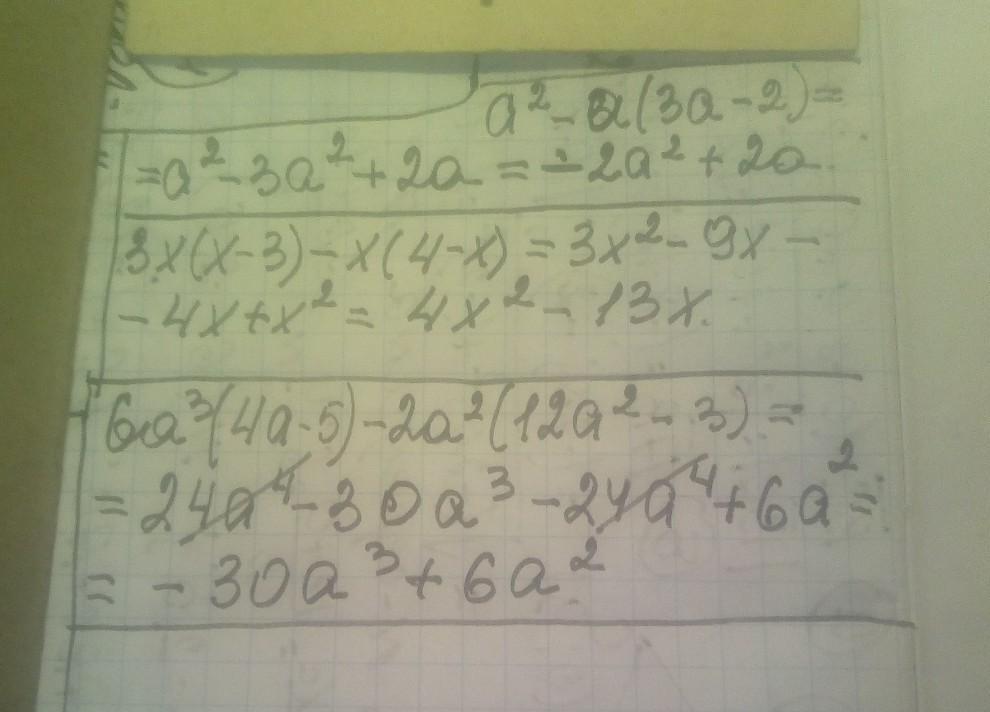 a² - a(3a - 2) =
= a² - 3a² + 2a = -2a² + 2a
3x(x-3) - x(4-x) = 3x² - 9x -
- 4x + x² = 4x² - 13x.
6a³(4a-5) - 2a²(12a² - 3) =
= 24a⁴ - 30a³ - 24a⁴ + 6a² =
= - 30a³ + 6a²